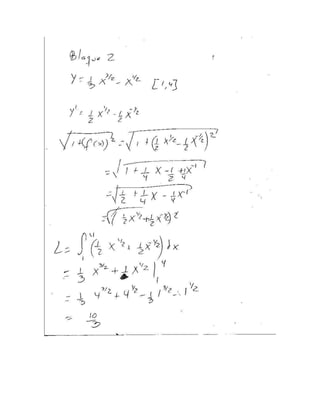 Bloque 2
y = 1/3 x^3/2 - x^1/2 [1,4]
y' = 1/2 x^1/2 - 1/2 x^-1/2
√(1+(f'(x))^2) = √(1+(1/2 x^1/2 - 1/2 x^-1/2)^2)
= √(1 + 1/4 x - 1/2 + 1/4 x^-1)
= √(1/2 + 1/4 x - 1/4 x^-1)
= √((1/2 x^1/2 + 1/2 x^-1/2)^2)
L = ∫_1^4 (1/2 x^1/2 + 1/2 x^-1/2) dx
= 1/3 x^3/2 + x^1/2 |_1^4
= 1/3 4^3/2 + 4^1/2 - 1/3 1^3/2 - 1^1/2
= 10/3